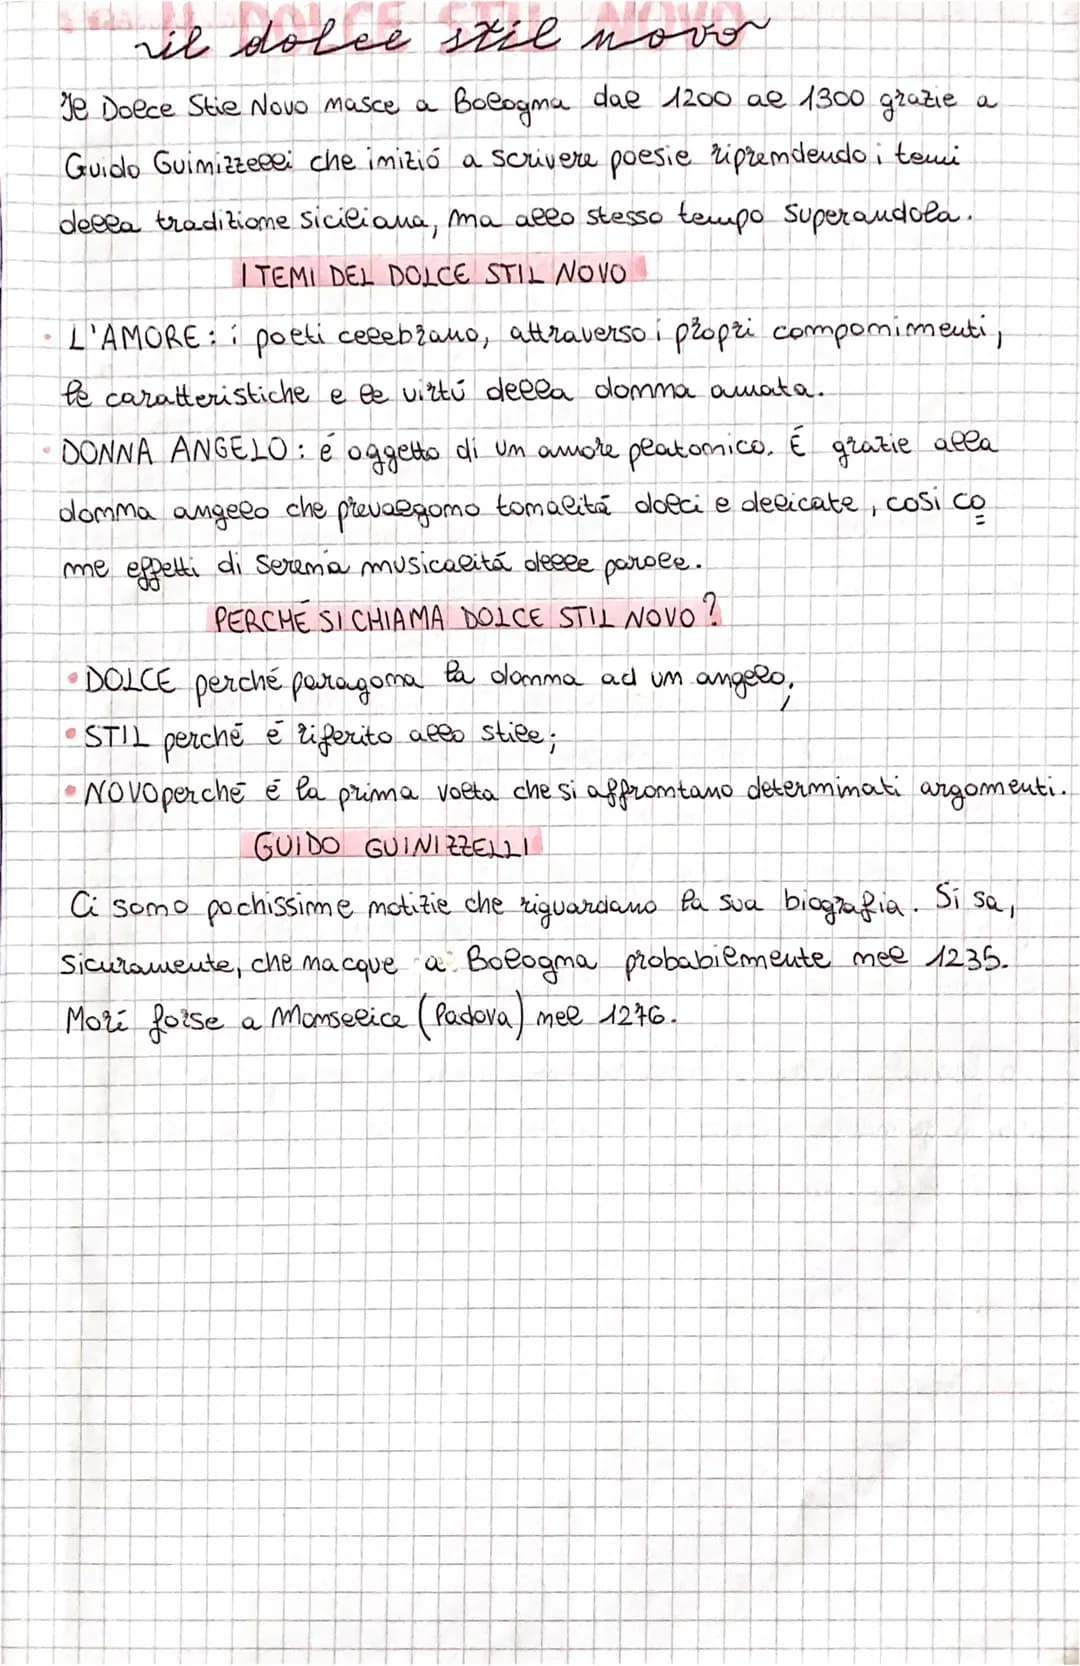 il dolce stil novo
Il Dolce Stil Novo nasce a Bologna dal 1200 al 1300 grazie a
Guido Guinizzelli che iniziò a scrivere poesie riprendendo i temi
della tradizione siciliana, ma allo stesso tempo superandola.
I TEMI DEL DOLCE STIL NOVO
• L'AMORE: i poeti celebrano, attraverso i propri componimenti,
le caratteristiche e le virtù della donna amata.
• DONNA ANGELO: é oggetto di un amore platonico. É grazie alla
donna angelo che prevalgono tonalità dolci e delicate, così co
me effetti di serena musicalità delle parole.
PERCHÉ SI CHIAMA DOLCE STIL NOVO?
• DOLCE perché paragona la donna ad un angelo;
• STIL perché é riferito allo stile;
• NOVO perché é la prima volta che si affrontano determinati argomenti.
GUIDO GUINIZZELLI
Ci sono pochissime notizie che riguardano la sua biografia. Si sa,
sicuramente, che nacque a Bologna probabilmente nel 1235.
Morì forse a Monselice (Padova) nel 1276.